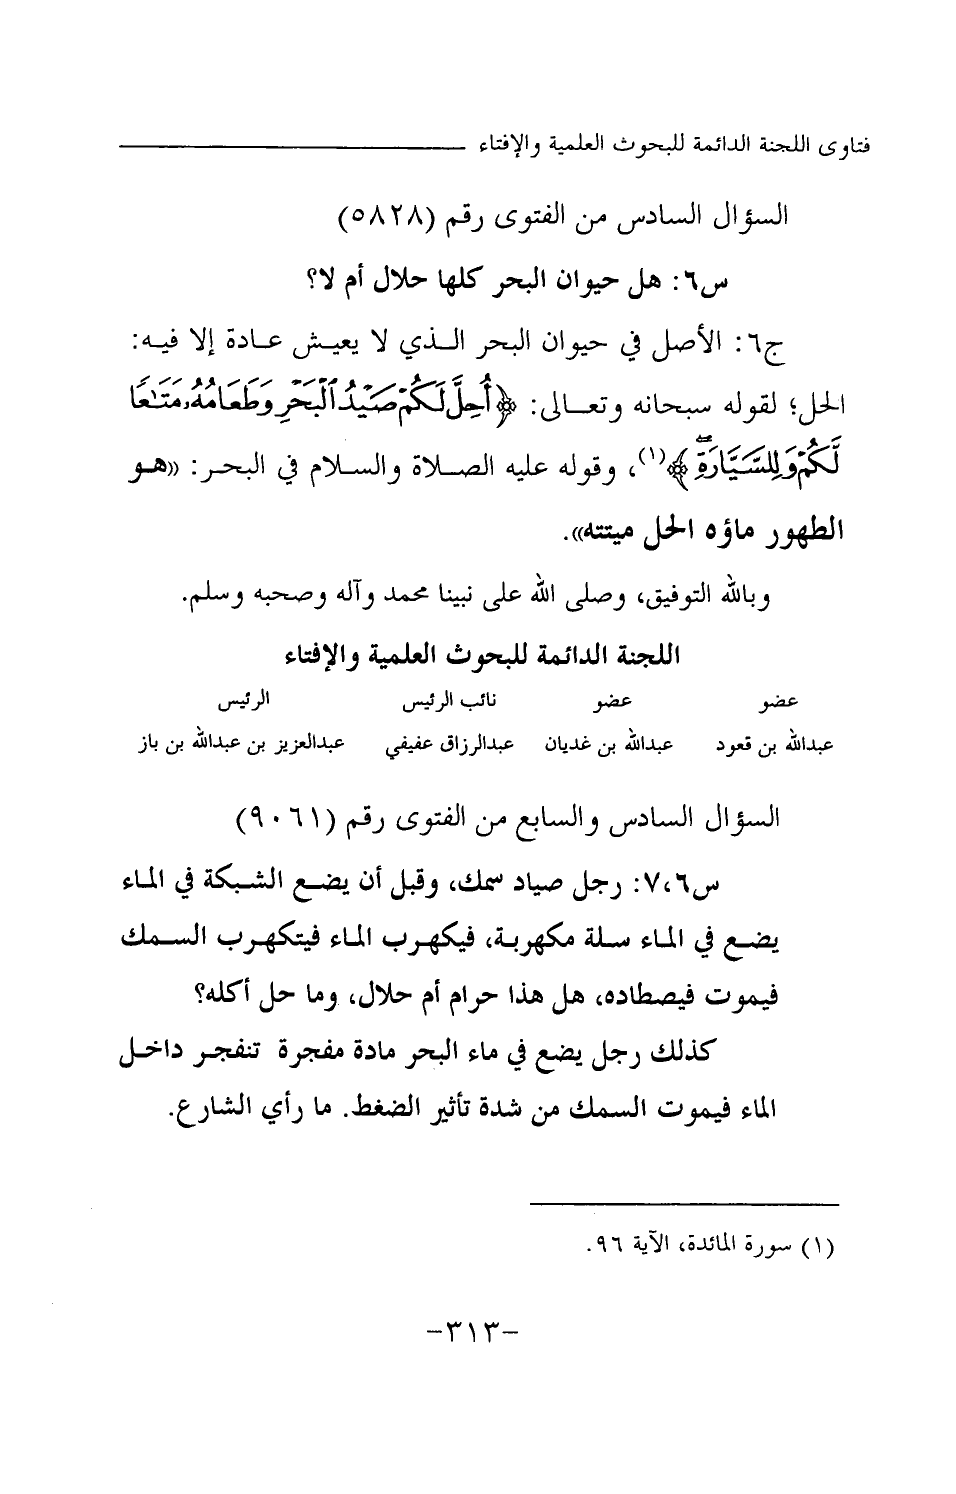 فتاوى اللجنة الدائمة للبحوث العلمية والإفتاء
السؤال السادس من الفتوى رقم (٥٨٢٨)
س٦: هل حيوان البحر كلها حلال أم لا؟
ج٦: الأصل في حيوان البحر الذي لا يعيش عادة إلا فيه:
الحل؛ لقوله سبحانه وتعالى: ﴿أُحِلَّ لَكُمْ صَيْدُ ٱلْبَحْرِ وَطَعَامُهُۥ مَتَٰعًا
لَّكُمْ وَلِلسَّيَّارَةِۖ﴾(١)، وقوله عليه الصلاة والسلام في البحر: «هو
الطهور ماؤه الحل ميتته».
وبالله التوفيق، وصلى الله على نبينا محمد وآله وصحبه وسلم.
اللجنة الدائمة للبحوث العلمية والإفتاء
عضو عضو نائب الرئيس الرئيس
عبدالله بن قعود عبدالله بن غديان عبدالرزاق عفيفي عبدالعزيز بن عبدالله بن باز
السؤال السادس والسابع من الفتوى رقم (٩٠٦١)
س٦،٧: رجل صياد سمك، وقبل أن يضع الشبكة في الماء
يضع في الماء سلة مكهربة، فيكهرب الماء فيتكهرب السمك
فيموت فيصطاده، هل هذا حرام أم حلال، وما حل أكله؟
كذلك رجل يضع في ماء البحر مادة مفجرة تنفجر داخل
الماء فيموت السمك من شدة تأثير الضغط. ما رأي الشارع.
(١) سورة المائدة، الآية ٩٦.
-٣١٣-